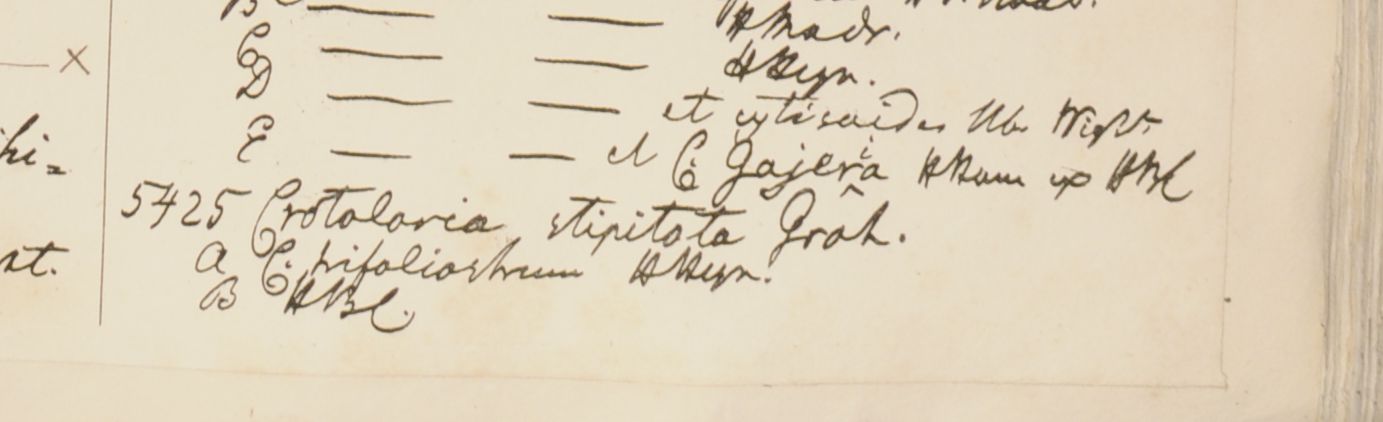 B
C — — HMadr.
D — — HHeyn.
E — — et cytisoides Hb. Wight
— — et C. Gajera HHam ex HBC
5425 Crotalaria stipitata Grah.
a C. trifoliastrum HHeyn.
B HBC.
hi=
nt.